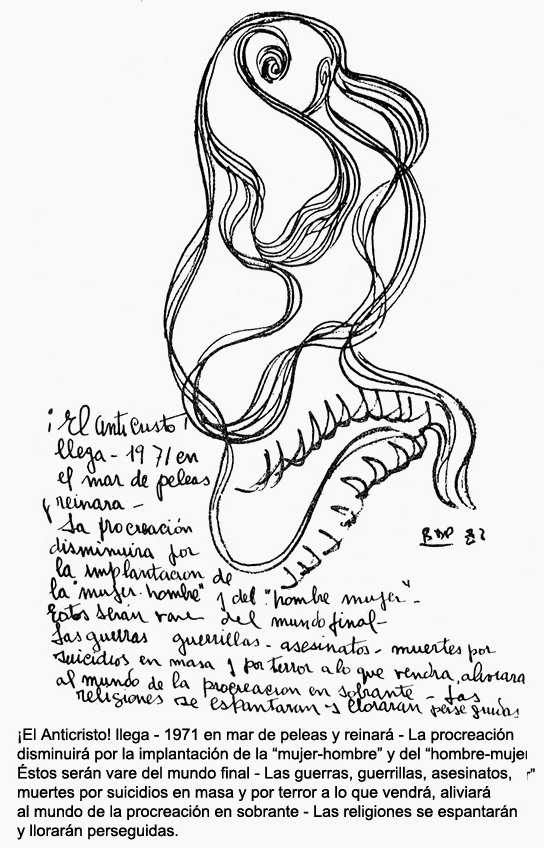 ¡El anticristo!
llega - 1971 en
el mar de peleas
y reinara -
La procreación
disminuira por
la implantacion de
la "mujer-hombre" y del "hombre mujer".
Estos serán vare del mundo final -
Las guerras guerrillas - asesinatos - muertes por
suicidios en masa y por terror a lo que vendra, aliviara
al mundo de la procreacion en sobrante - Las
religiones se espantaran y lloraran perseguidas
BSP
¡El Anticristo! llega - 1971 en mar de peleas y reinará - La procreación
disminuirá por la implantación de la “mujer-hombre” y del “hombre-mujer”
Éstos serán vare del mundo final - Las guerras, guerrillas, asesinatos,
muertes por suicidios en masa y por terror a lo que vendrá, aliviará
al mundo de la procreación en sobrante - Las religiones se espantarán
y llorarán perseguidas.